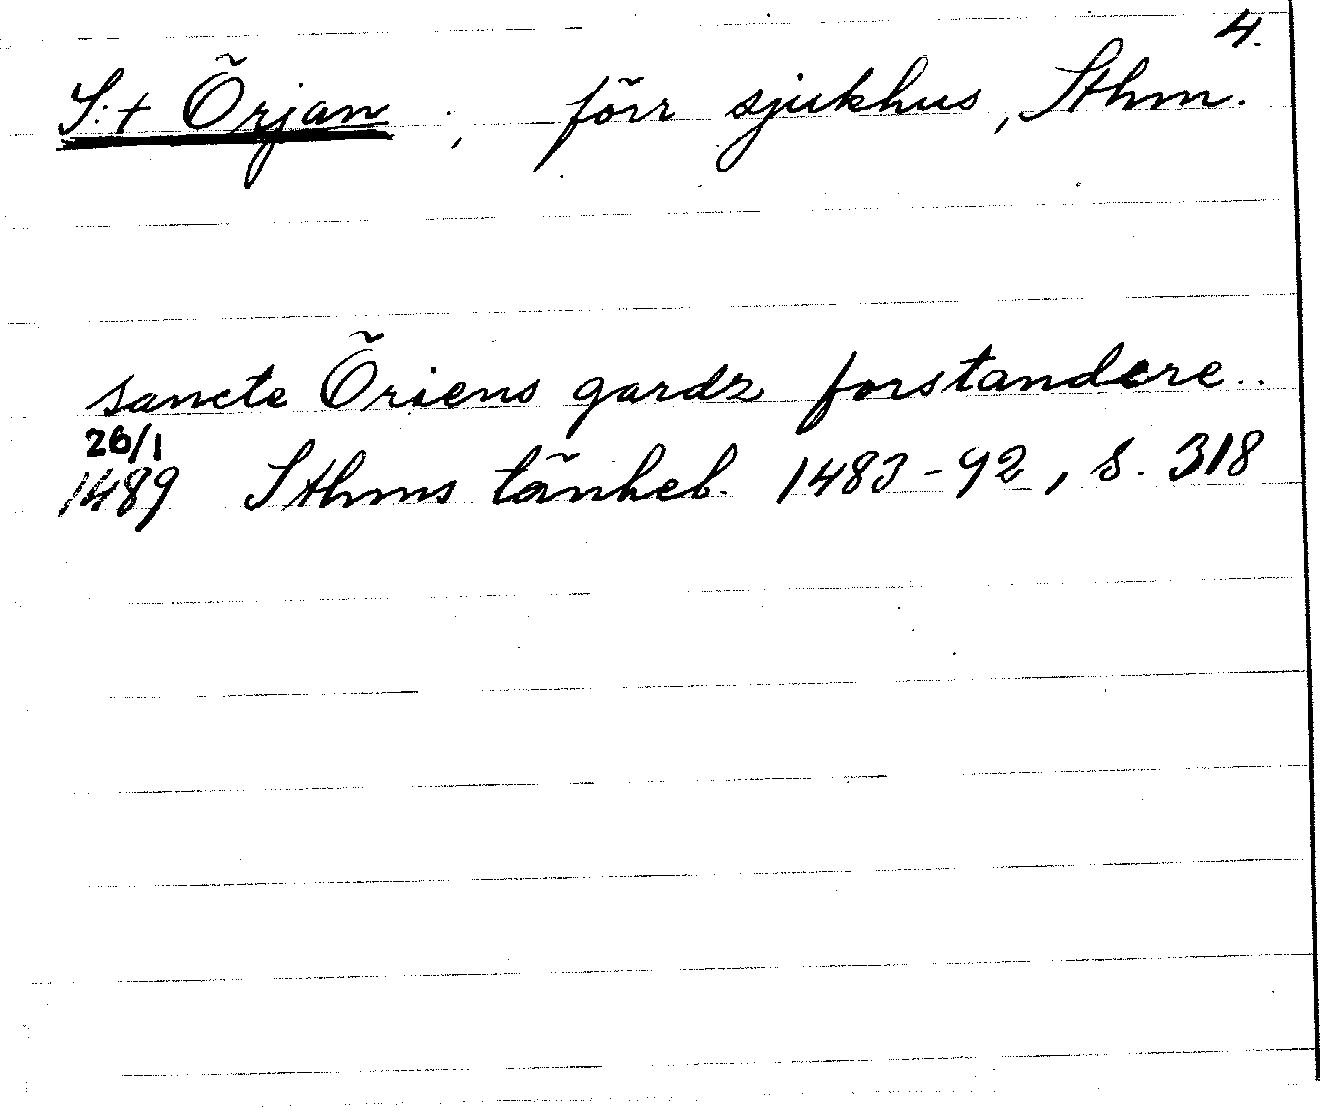 4.
S:t Örjan ; förr sjukhus, Sthm.
sancte Öriens gardz forstandere..
26/1
1489 Sthms tänkeb. 1483-92, s. 318